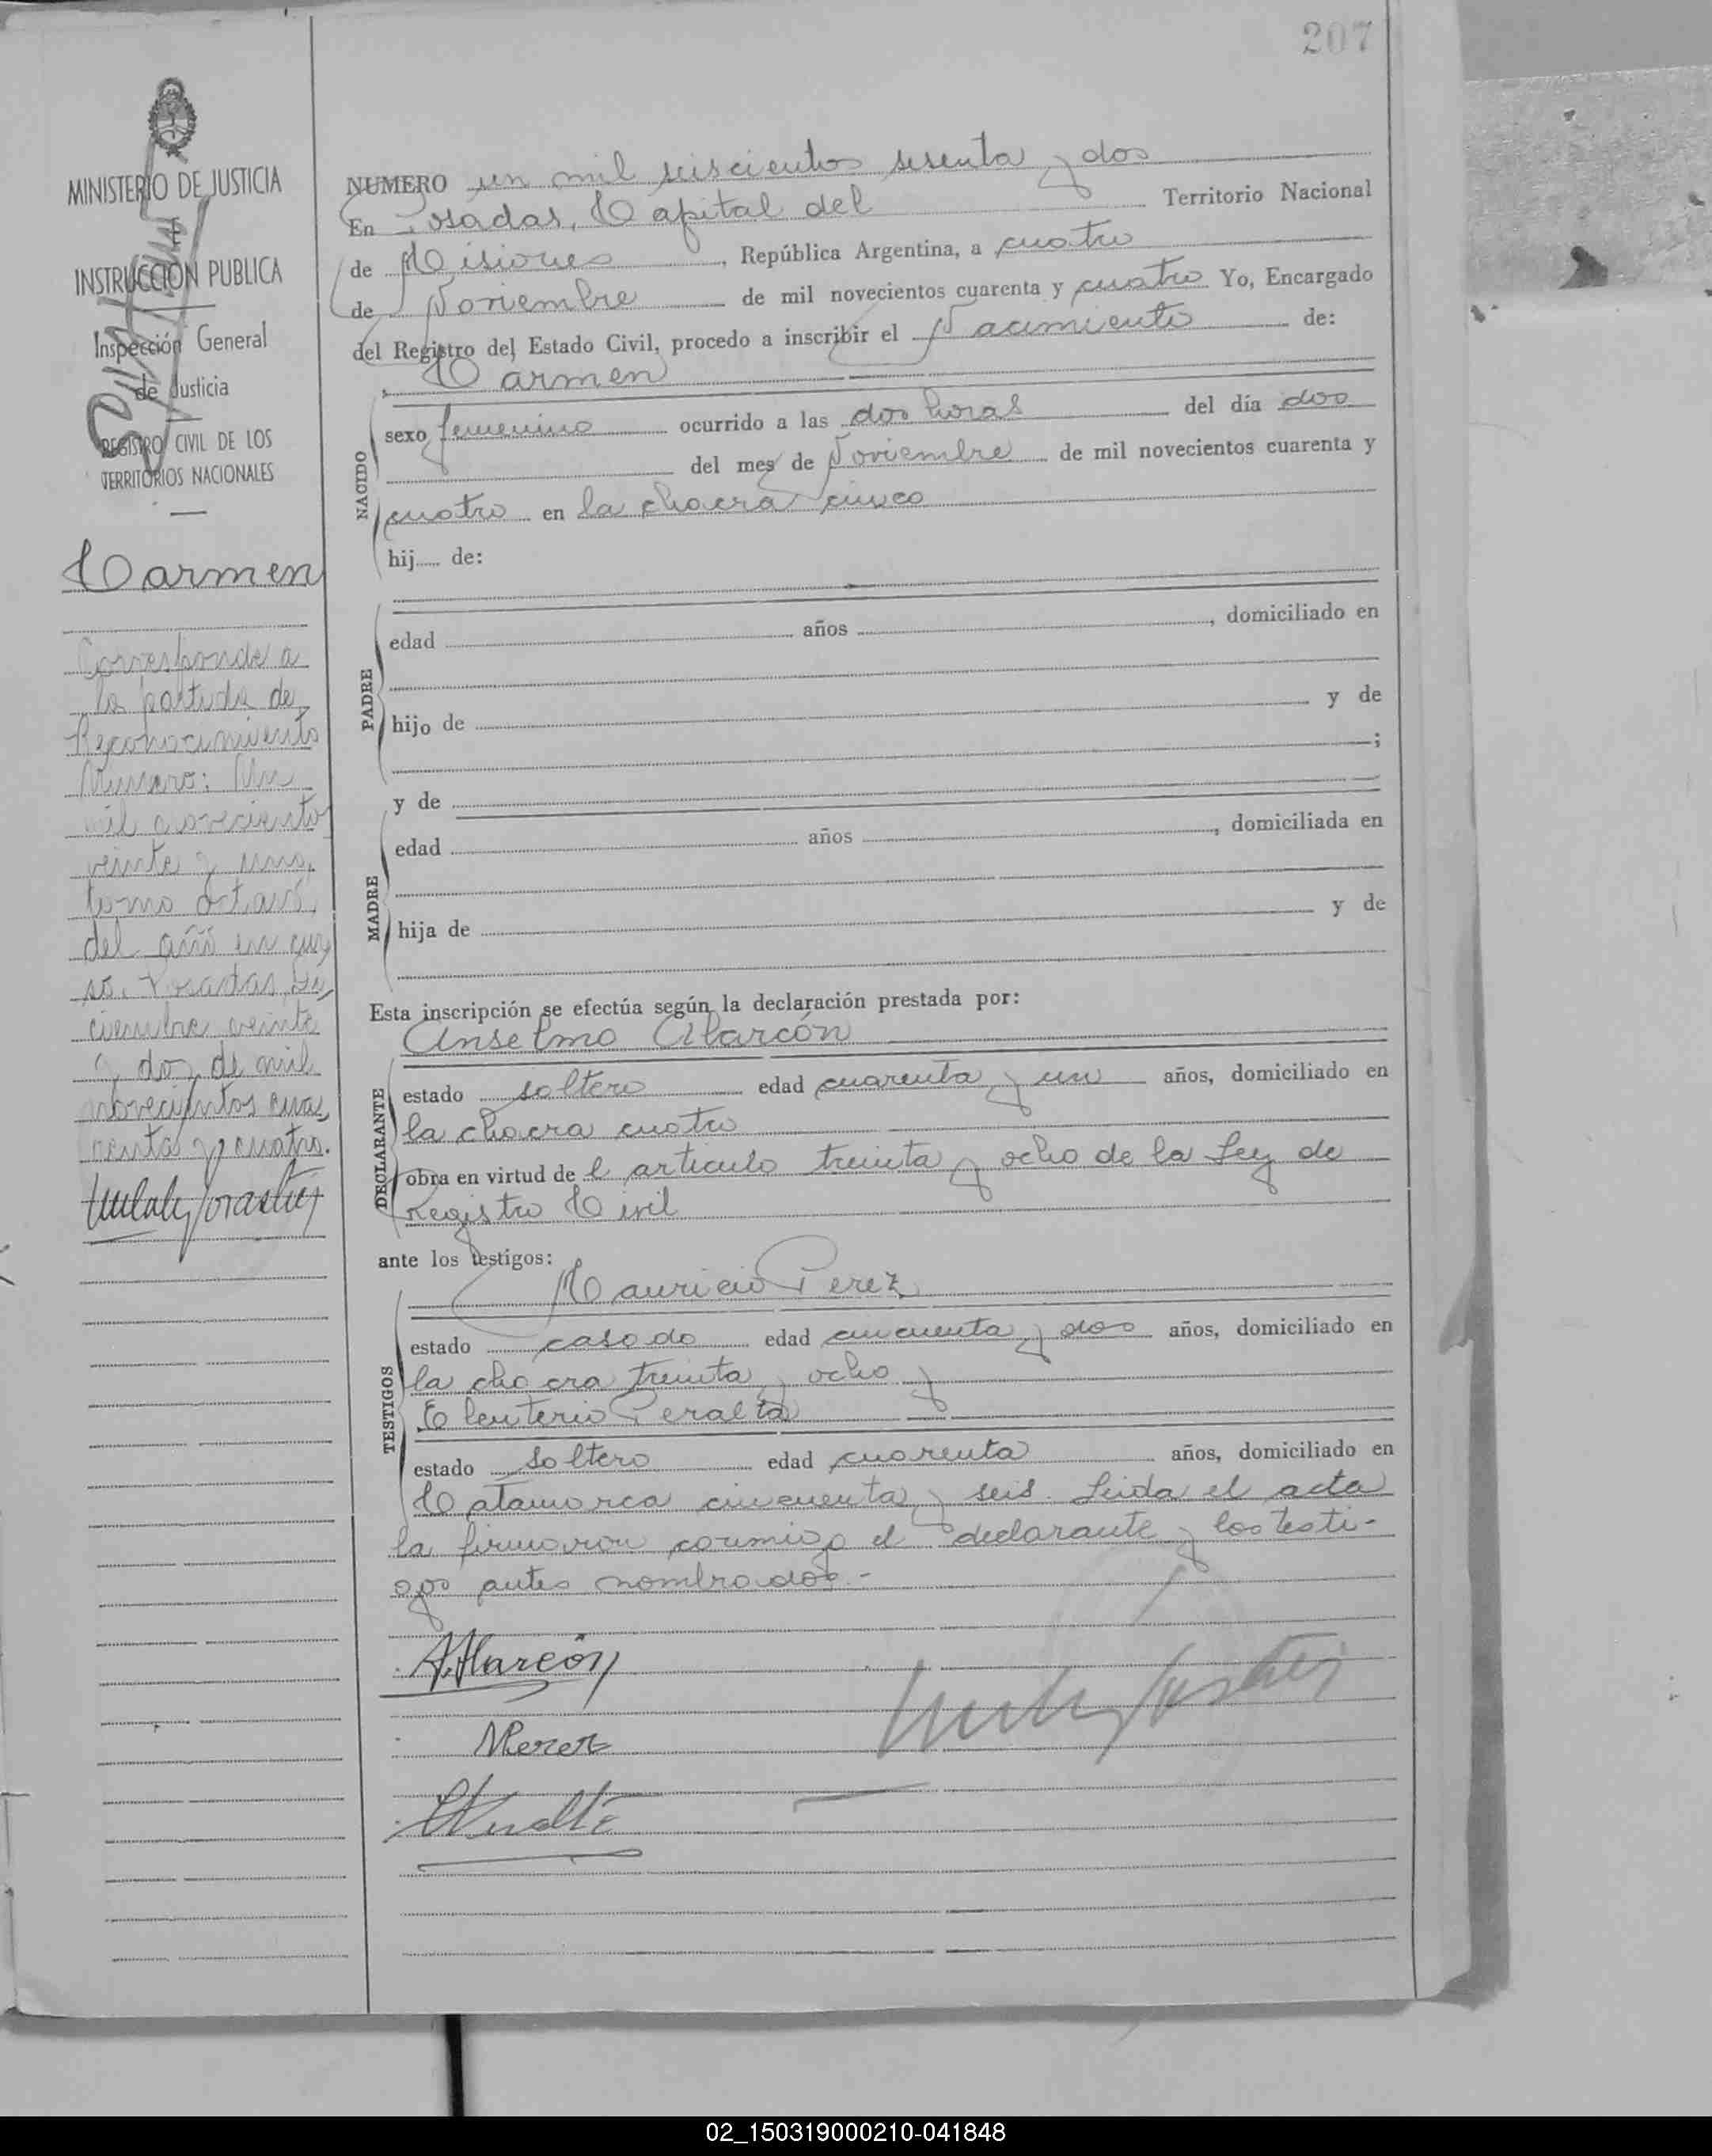 207
MINISTERIO DE JUSTICIA
INSTRUCCIÓN PUBLICA
Inspección General
de Justicia
REGISTRO CIVIL DE LOS
TERRITORIOS NACIONALES
Carmen
Corresponde a
la partida de
Reconocimiento
Número: Un
mil novecientos
veinte y uno,
tomo octavo,
del año en cur
so. Posadas, Di
ciembre veinte
y dos de mil
novecientos cua
renta y cuatro.
NUMERO un mil seiscientos sesenta y dos
En Posadas, Capital del Territorio Nacional
de Misiones, República Argentina, a cuatro
de Noviembre de mil novecientos cuarenta y cuatro Yo, Encargado
del Registro del Estado Civil, procedo a inscribir el Nacimiento de:
Carmen
NACIDO
sexo femenino ocurrido a las dos horas del día dos
del mes de Noviembre de mil novecientos cuarenta y
cuatro en la chacra cinco
hij de:
PADRE
edad años , domiciliado en
hijo de y de
;
y de
MADRE
edad años , domiciliada en
hija de y de
Esta inscripción se efectúa según la declaración prestada por:
Anselmo Alarcón
DECLARANTE
estado soltero edad cuarenta y un años, domiciliado en
la chacra cuatro
obra en virtud de l articulo treinta y ocho de la Ley de
Registro Civil
ante los testigos:
Mauricio Perez
TESTIGOS
estado casado edad cincuenta y dos años, domiciliado en
la chacra treinta y ocho y
Eleuterio Peralta
estado soltero edad cuarenta años, domiciliado en
Catamarca cincuenta y seis. Leida el acta
la firmaron conmigo el declarante y los testi-
gos antes nombrados.-
A. Alarcón
MPerez
02_150319000210-041848